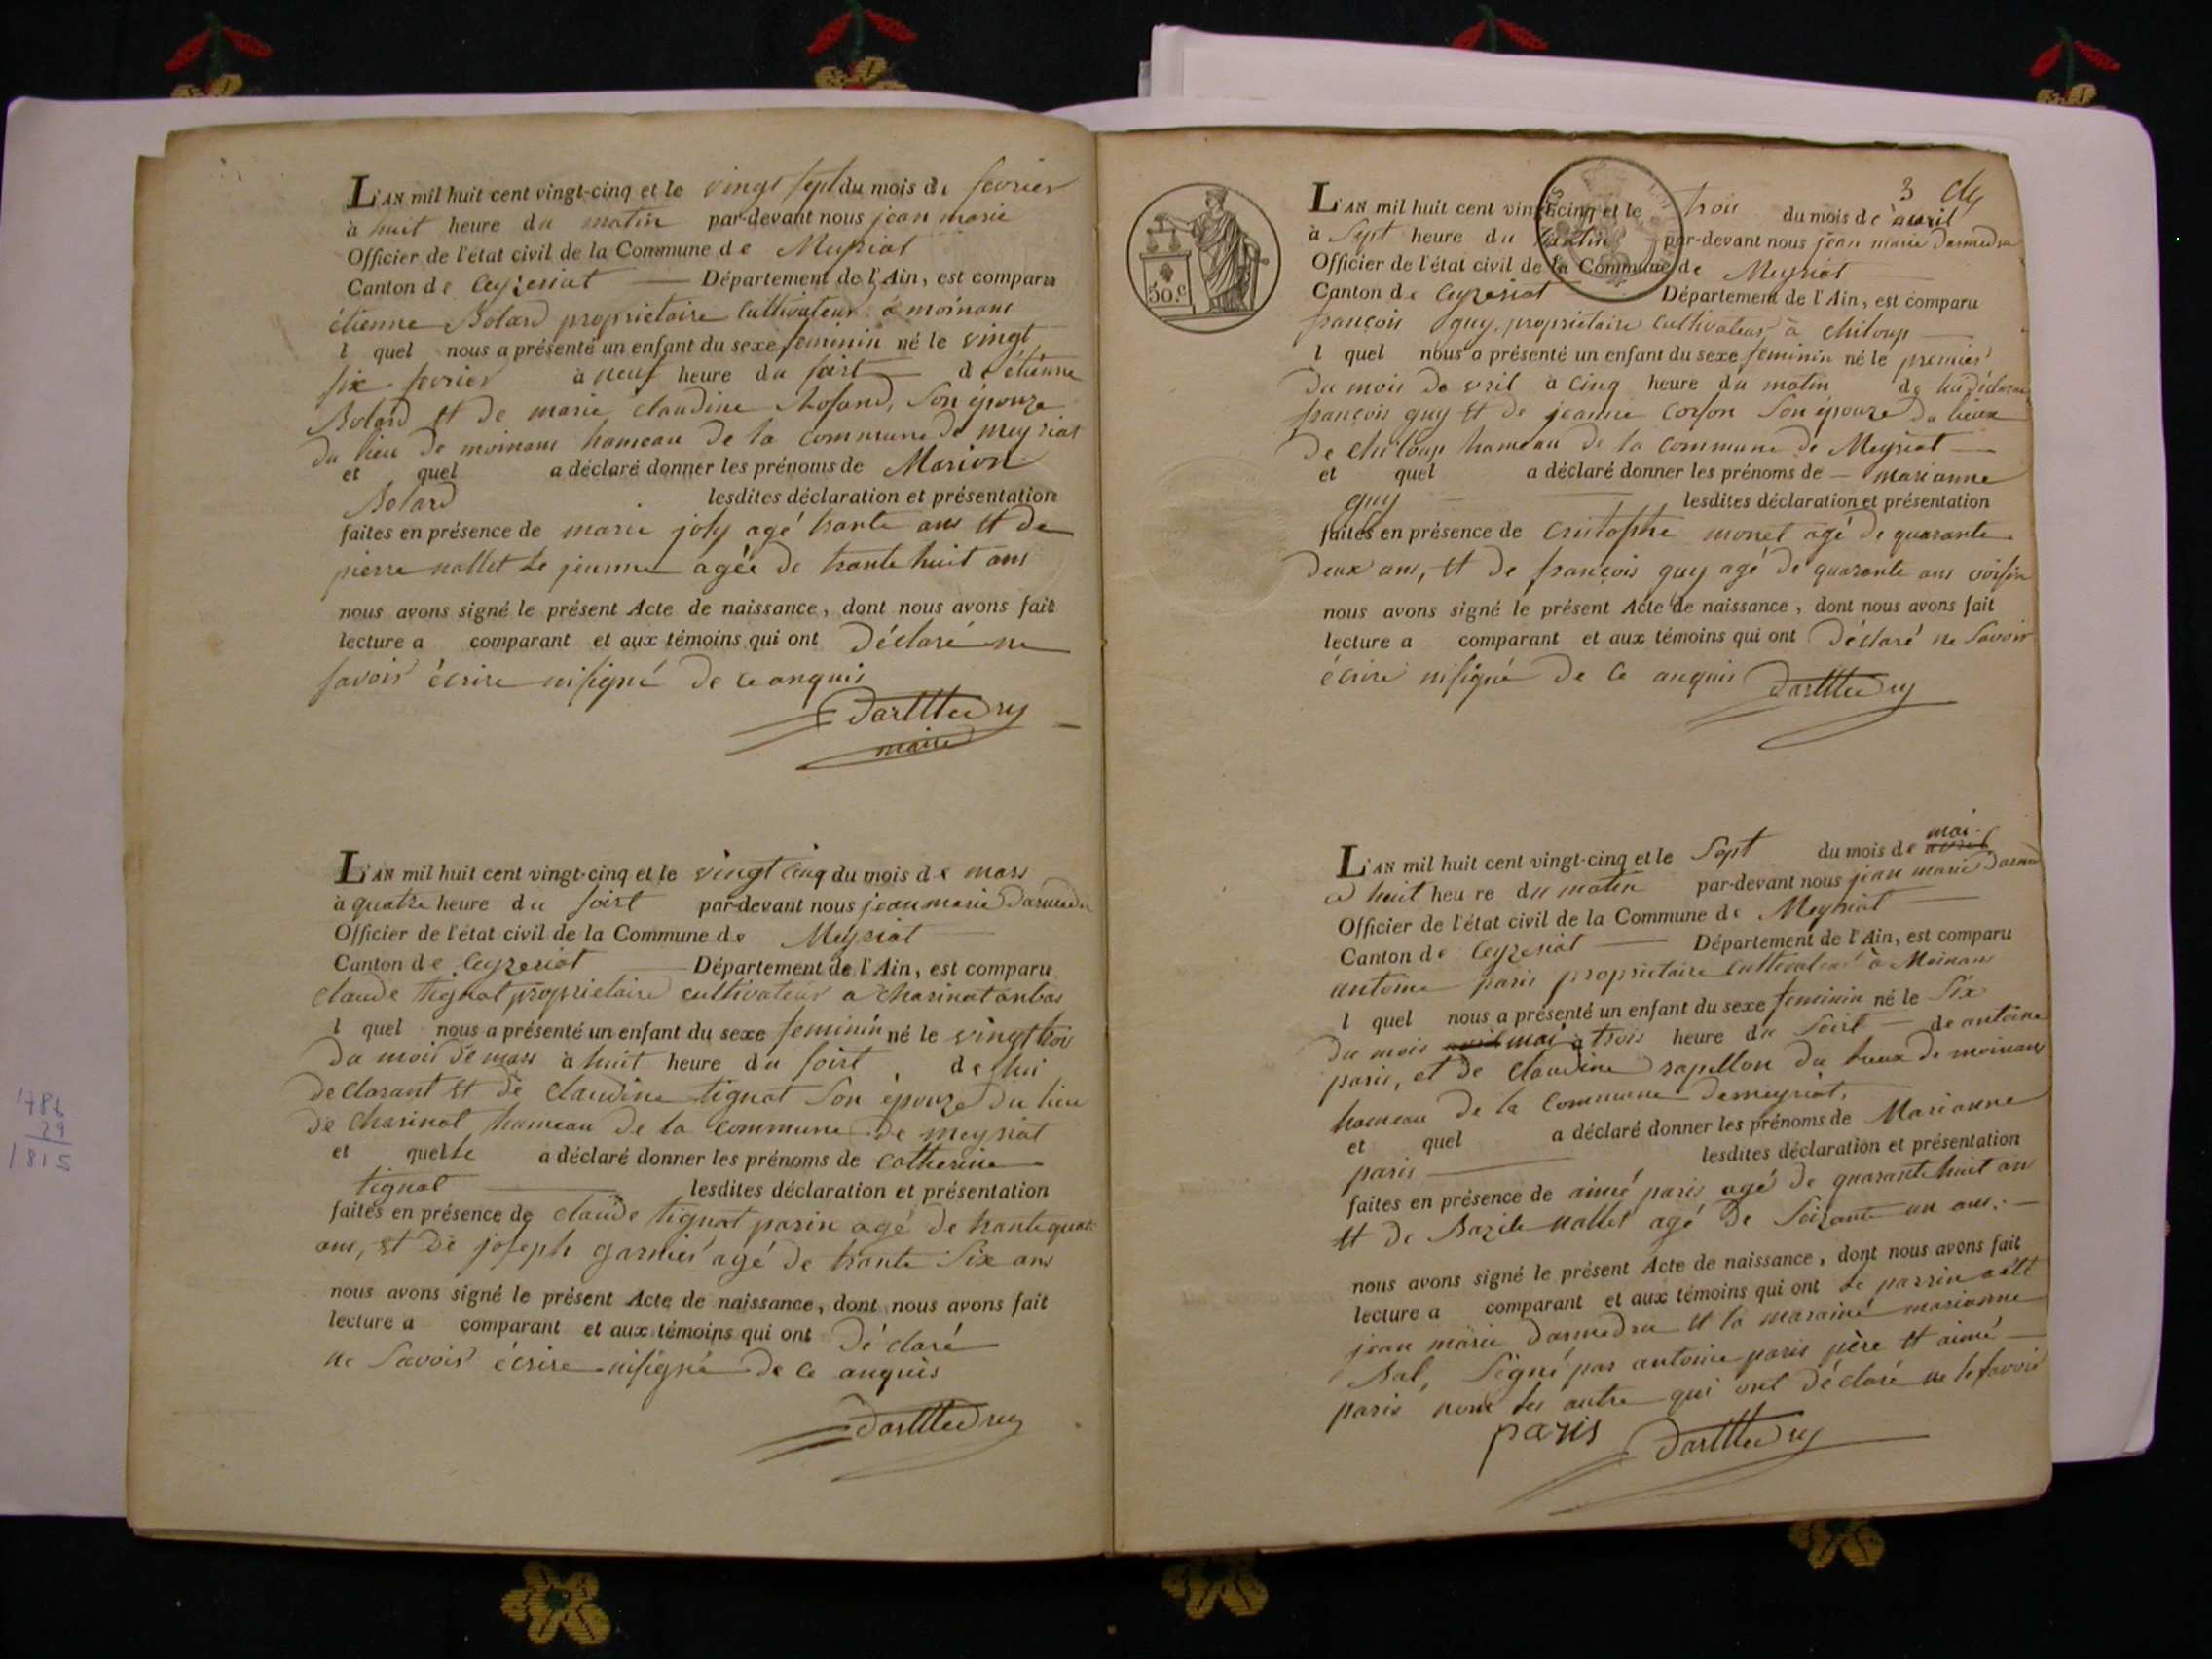 L'AN mil huit cent vingt-cinq et le vingt sept du mois de fevrier
à huit heure du matin par-devant nous jean marie
Officier de l'état civil de la Commune de Meyriat
Canton de Ceyzeriat Département de l'Ain, est comparu
étienne Bolard proprietaire Cultivateur à moinans
l quel nous a présenté un enfant du sexe feminin né le vingt
six fevrier à neuf heure du soirt de étienne
Bolard et de marie claudine son épouze
du lieu de moinans hameau de la commune de meyriat
et quel a déclaré donner les prénoms de Marion
Bolard lesdites déclaration et présentation
faites en présence de marie joly agé trante ans et de
pierre nallet le jeunne agée de trante huit ans
nous avons signé le présent Acte de naissance, dont nous avons fait
lecture a comparant et aux témoins qui ont déclaré ne
savoir écrire nisigné de ce anquis
maire
L'AN mil huit cent vingt-cinq et le vingt cinq du mois de mars
à quatre heure du soirt par-devant nous jean marie Darmedru
Officier de l'état civil de la Commune de Meyriat
Canton de Ceyzeriat Département de l'Ain, est comparu
claude tignat proprietaire cultivateur a Charinat anbas
l quel nous a présenté un enfant du sexe feminin né le vingt troi
du mois de mars à huit heure du soirt de lui
declarant et de claudine tignat son épouze du lieu
de charinat hameau de la commune de meyriat
et quel le a déclaré donner les prénoms de catherine
tignat lesdites déclaration et présentation
faites en présence de claude tignat parin agé de trante quat
ans, et de joseph garnier agé de trante six ans
nous avons signé le présent Acte de naissance, dont nous avons fait
lecture a comparant et aux témoins qui ont déclaré
ne savoir écrire nisigné de ce anquis
1786
29
1815
3
50.c
L'AN mil huit cent vingt-cinq et le trois du mois de avril
à sept heure du matin par-devant nous jean marie Darmedru
Officier de l'état civil de la Commune de Meyriat
Canton de Ceyzeriat Département de l'Ain, est comparu
françois guy, proprietaire cultivateur à chiloup
l quel nous a présenté un enfant du sexe feminin né le premier
du mois da vril à cinq heure du matin de lui déclaran
françois guy et de jeanne corson son épouze du lieux
de chiloup hameau de la commune de Meyriat
et quel a déclaré donner les prénoms de marianne
guy lesdites déclaration et présentation
faites en présence de Cristophe monet agé de quarante
deux ans, et de françois guy agé de quarante ans voisin
nous avons signé le présent Acte de naissance, dont nous avons fait
lecture a comparant et aux témoins qui ont déclaré ne savoir
écrire nisigné de ce anquis
L'AN mil huit cent vingt-cinq et le sept du mois de avril mai
à huit heure du matin par-devant nous jean marie Darme
Officier de l'état civil de la Commune de Meyriat
Canton de Ceyzeriat Département de l'Ain, est comparu
antoine paris proprietaire cultivateur à Moinans
l quel nous a présenté un enfant du sexe feminin né le six
du mois avril mai à trois heure du soirt de antoine
paris, et de claudine rapillon du lieux de moinans
hameau de la commune demeyriat,
et quel a déclaré donner les prénoms de Marianne
paris lesdites déclaration et présentation
faites en présence de aimé paris agé de quarante huit an
et de Bazile nallet agé de soizante un ans.
nous avons signé le présent Acte de naissance, dont nous avons fait
lecture a comparant et aux témoins qui ont le parrin a été
jean marie Darmedru et la maraine marianne
Bal, signé par antoine paris père et aimé
paris non les autre qui ont déclaré ne le savoir
paris